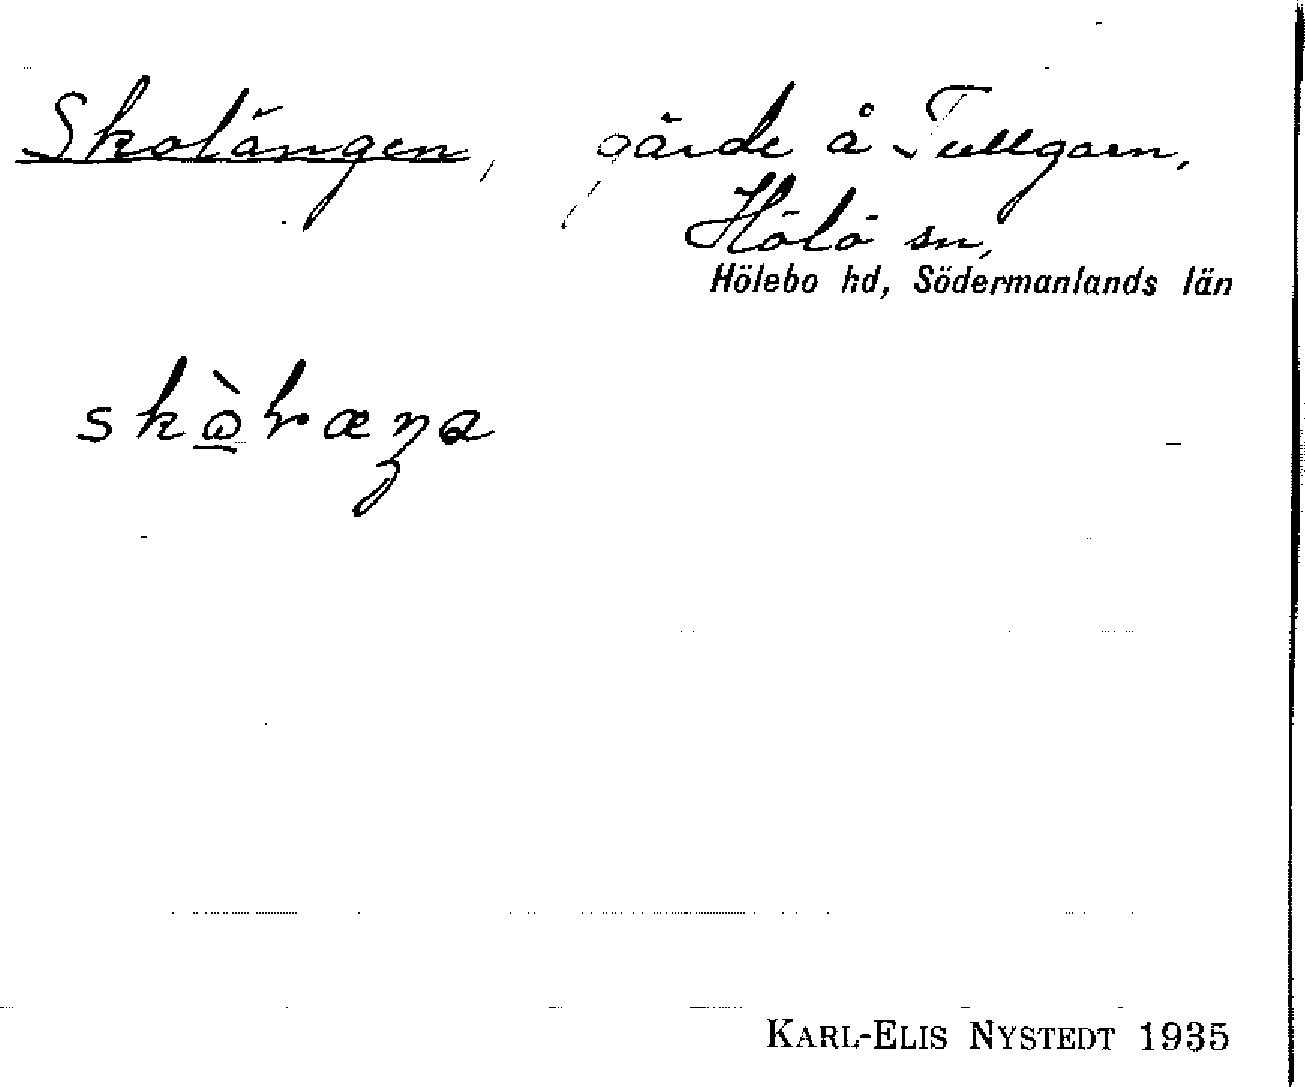 Skolängen, gärde å Tullgarn,
Hölö sn,
Hölebo hd, Södermanlands län
KARL-ELIS NYSTEDT 1935